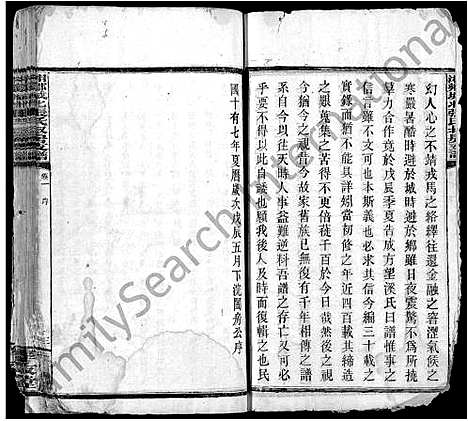 幻人心之不靖戎馬之絡繹往還金融之窘澀氣候之
寒嚴暑酷時避於城時避於鄉雖日夜震驚不爲所撓
羣力合作競竟成之於戊辰季夏告成方望溪氏曰譜惟事之
信言雖不文可也本斯義也必求其信今編三十載之
實錄而猶不能具詳矧當初修之年近四百載其締造
之艱蒐集之苦得不更倍蓰千百於今日哉然後之視
今猶今之視昔今故家舊族已無復有千年相傳之譜
系自今以往天時人事益難逆料吾譜之存亡又可必
乎要不得以此自諉也願我後人及時而復輯之也民
國十有七年夏曆歲次戊辰五月下浣闔房公序
卷一
序
FamilySearch International